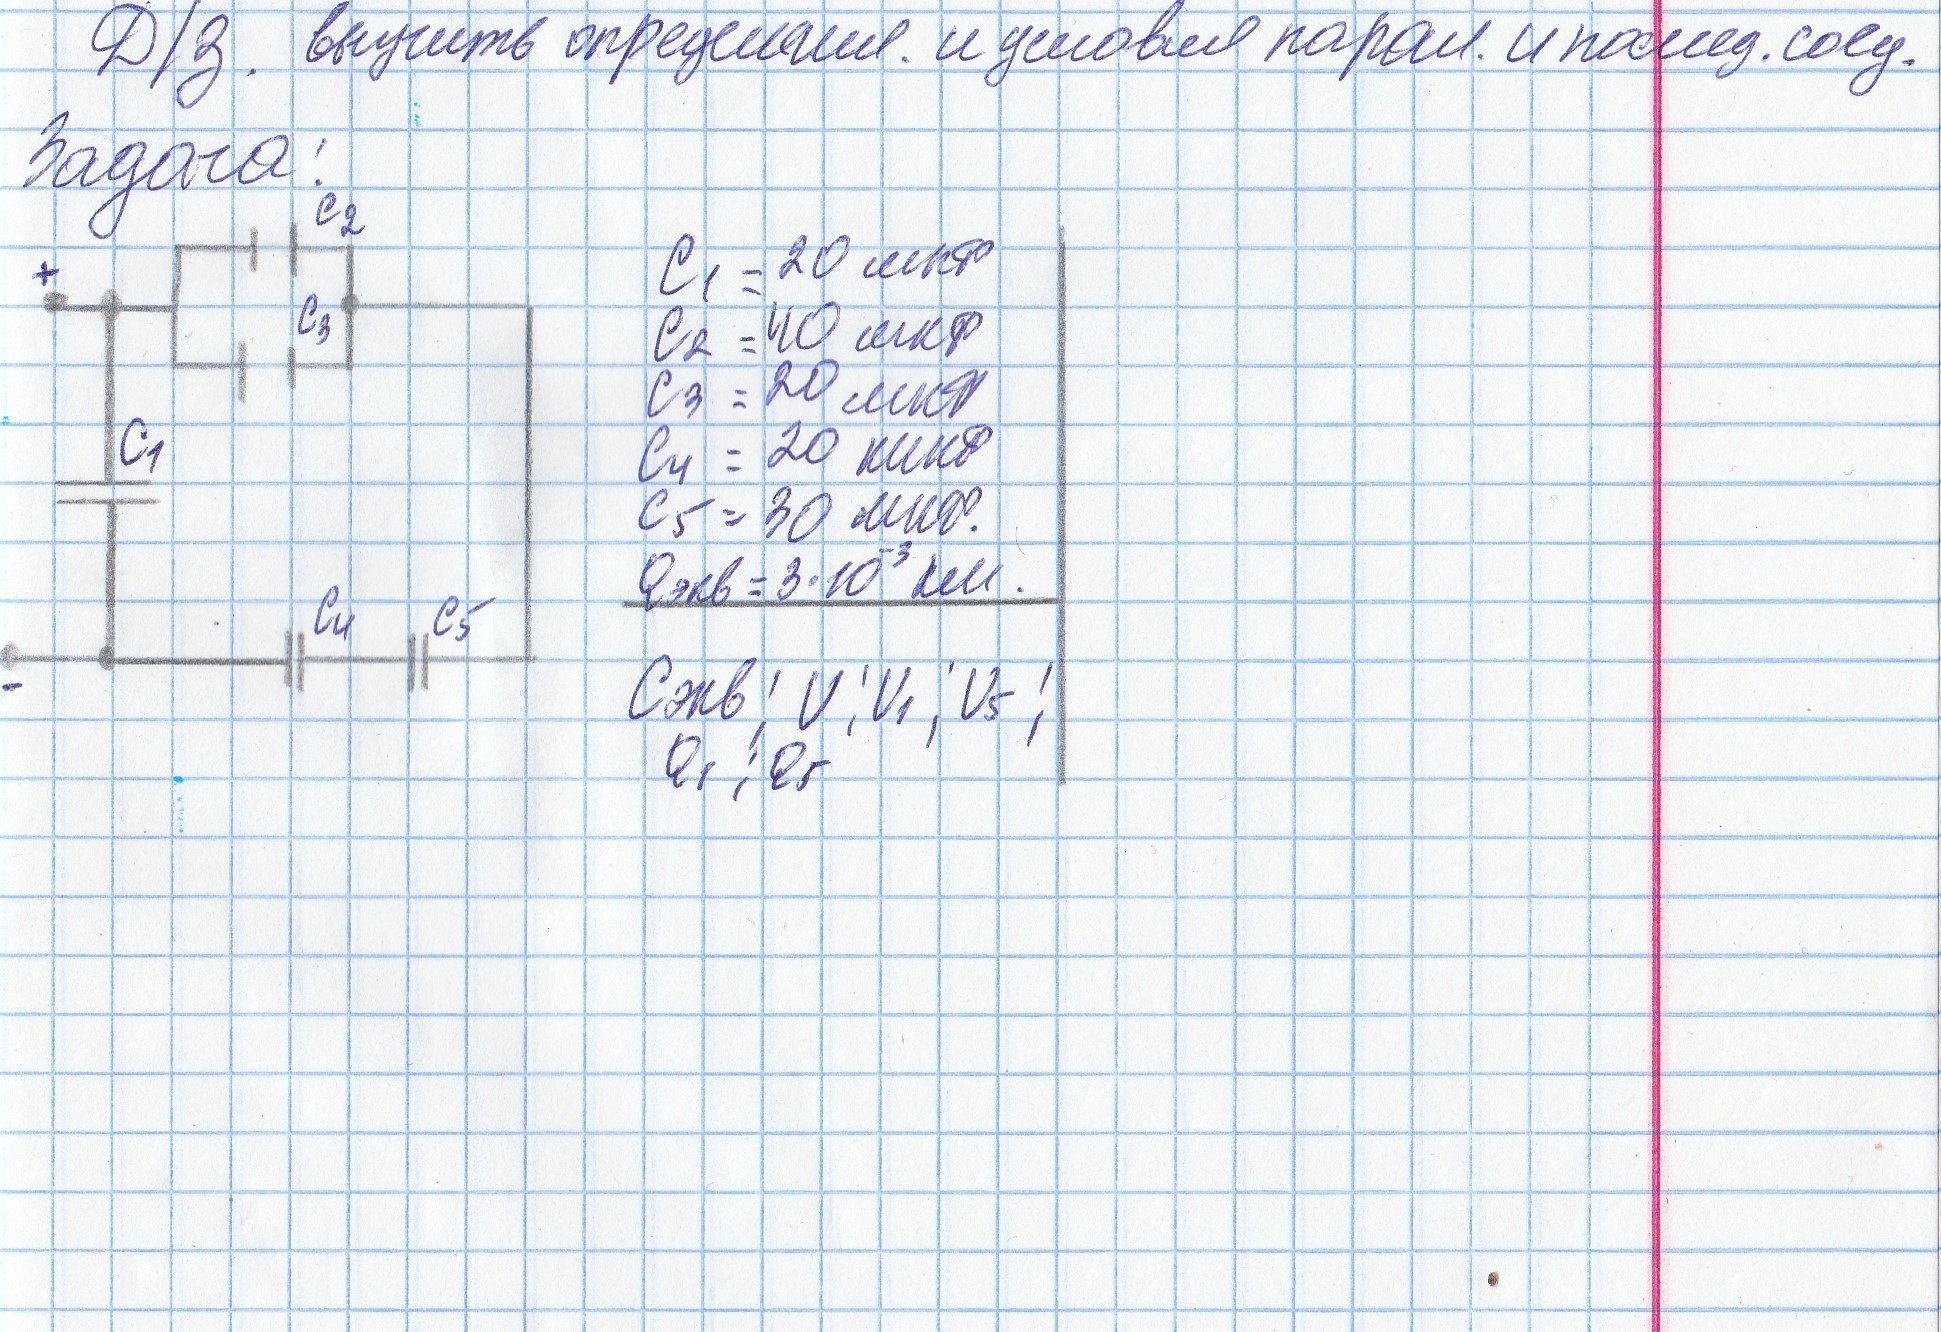 Д/З. выучить определения. и условия парал. и послед. соед.
Задача:
C2
+
C3
C1
C4 C5
-
C1 = 20 мкФ
C2 = 40 мкФ
C3 = 20 мкФ
C4 = 20 мкФ
C5 = 30 мкФ.
Qэкв = 3·10⁻³ кл.
Cэкв; U; U1; U5;
Q1; Q5